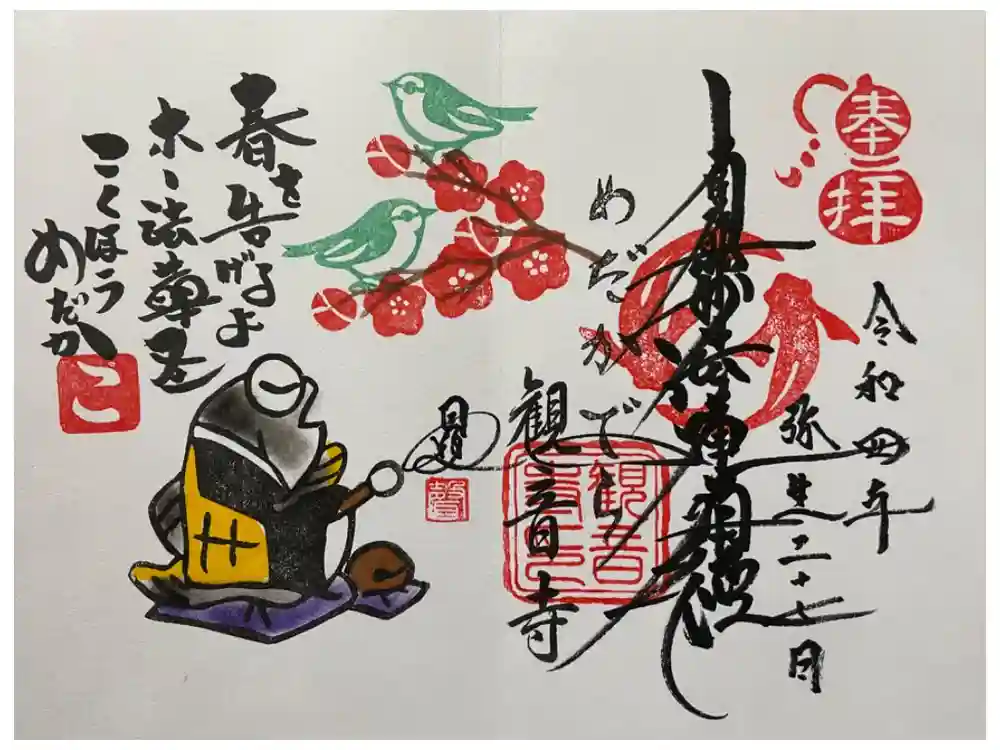 奉拝
令和四年
弥生二十七日
南無妙法蓮華経
めだかでら
観音寺
春を告げるよ
ホー法華経
こくほう
めだか
こ